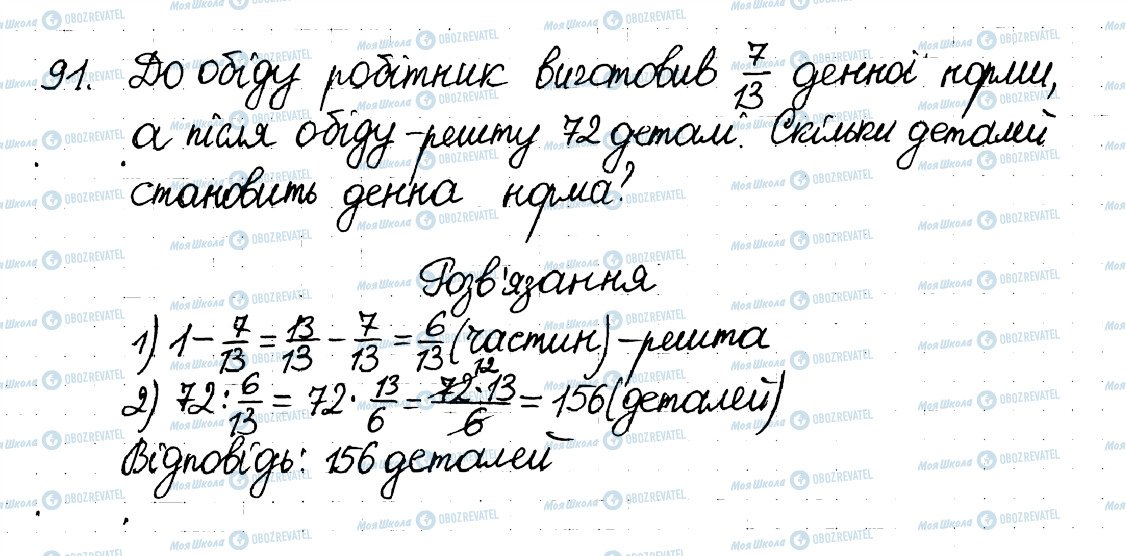 91. До обіду робітник виготовив 7/13 денної норми,
а після обіду – решту 72 деталі. Скільки деталей
становить денна норма?
Розв'язання
1) 1 – 7/13 = 13/13 – 7/13 = 6/13 (частин) – решта
2) 72 : 6/13 = 72 · 13/6 = 72 · 13/6 = 156 (деталей)
12
Відповідь: 156 деталей
МОЯ ШКОЛА OBOZREVATEL